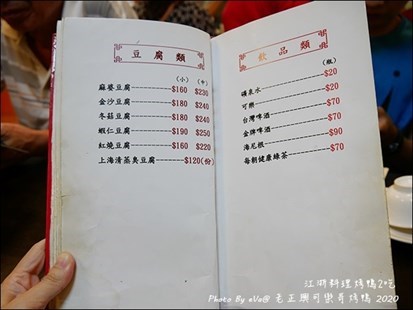 豆腐類
(小) (中)
麻婆豆腐----------$160 $230
金沙豆腐----------$180 $240
冬菇豆腐----------$180 $240
蝦仁豆腐----------$190 $250
紅燒豆腐----------$160 $220
上海清蒸臭豆腐--------$120(份)
飲品類
(瓶)
礦泉水--------------$20
可樂----------------$20
台灣啤酒------------$70
金牌啤酒------------$70
海尼根--------------$90
每朝健康綠茶--------$70
江浙料理烤鴨2吃
Photo By eVa@ 老正興可樂哥烤鴨 2020